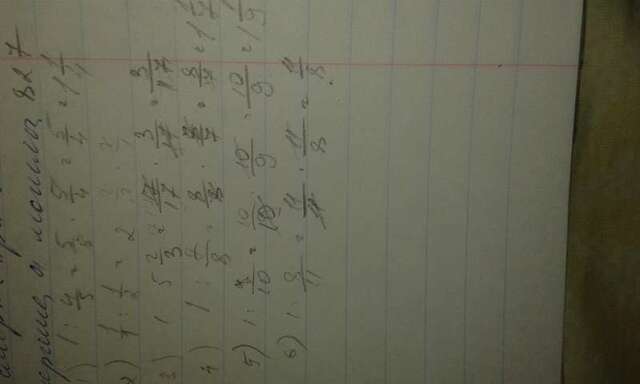 827
1) 1 : 4/5 = 5/5 · 5/4 = 5/4 = 1 1/4
2) 1/1 : 1/2 = 2
3) 1 5 2/3 = 17/17 · 3/17 = 3/17
4) 1 : 7/8 = 8/8 · 8/7 = 8/7 = 1 1/7
5) 1 : 9/10 = 10/10 · 10/9 = 10/9 = 1 1/9
6) 1 : 8/11 = 11/11 · 11/8 = 11/8